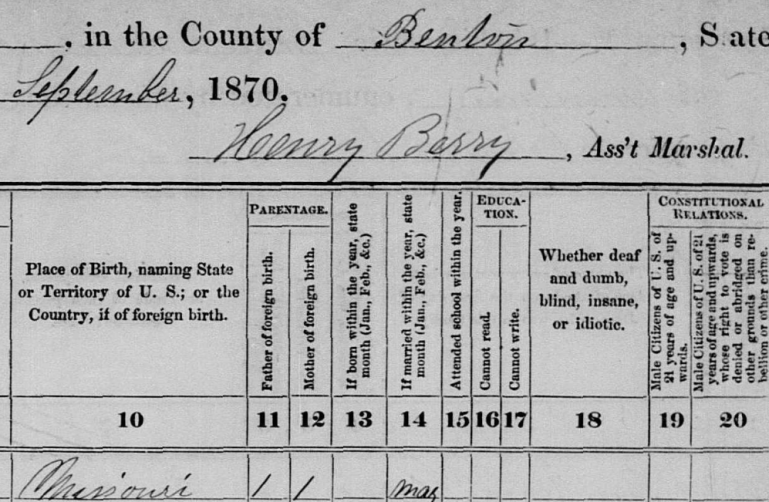 , in the County of Benton, State
September, 1870.
Henry Berry, Ass't Marshal.
PARENTAGE.
EDUCA-
TION.
CONSTITUTIONAL
RELATIONS.
Place of Birth, naming State
or Territory of U. S.; or the
Country, if of foreign birth.
Father of foreign birth.
Mother of foreign birth.
If born within the year, state
month (Jan., Feb., &c.)
If married within the year, state
month (Jan., Feb., &c.)
Attended school within the year.
Cannot read.
Cannot write.
Whether deaf
and dumb,
blind, insane,
or idiotic.
Male Citizens of U. S. of
21 years of age and up-
wards.
Male Citizens of U. S. of 21
years of age and upwards,
whose right to vote is
denied or abridged on
other grounds than re-
bellion or other crime.
10 11 12 13 14 15 16 17 18 19 20
Missouri / / may